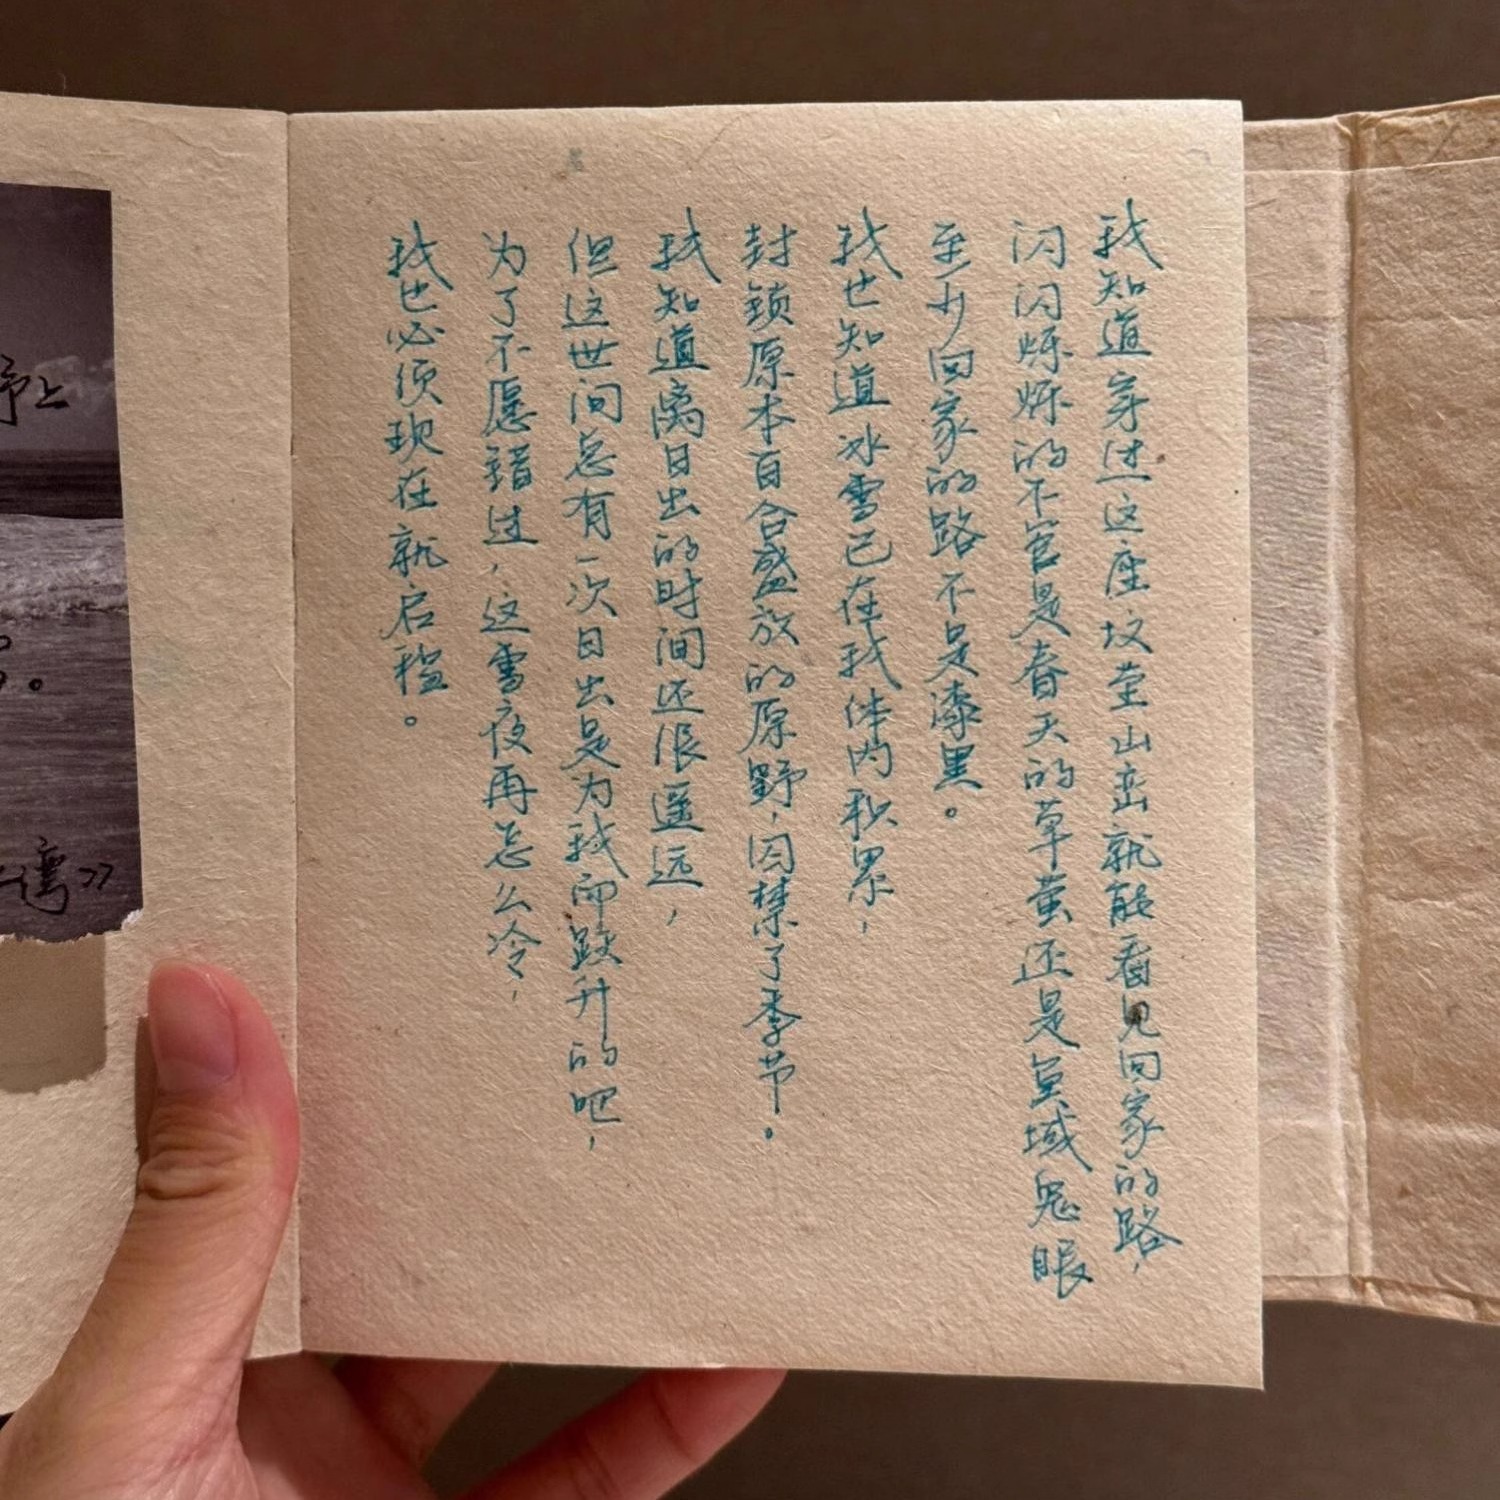 我知道穿过这座坟茔山峦就能看见回家的路，
闪闪烁烁的不管是春天的草萤还是冥域鬼眼
至少回家的路不是漆黑。
我也知道冰雪已在我体内积累，
封锁原本百合盛放的原野，囚禁了季节。
我知道离日出的时间还很遥远，
但这世间总有一次日出是为我而跃升的吧，
为了不愿错过，这雪夜再怎么冷，
我也必须现在就启程。
上
湾》